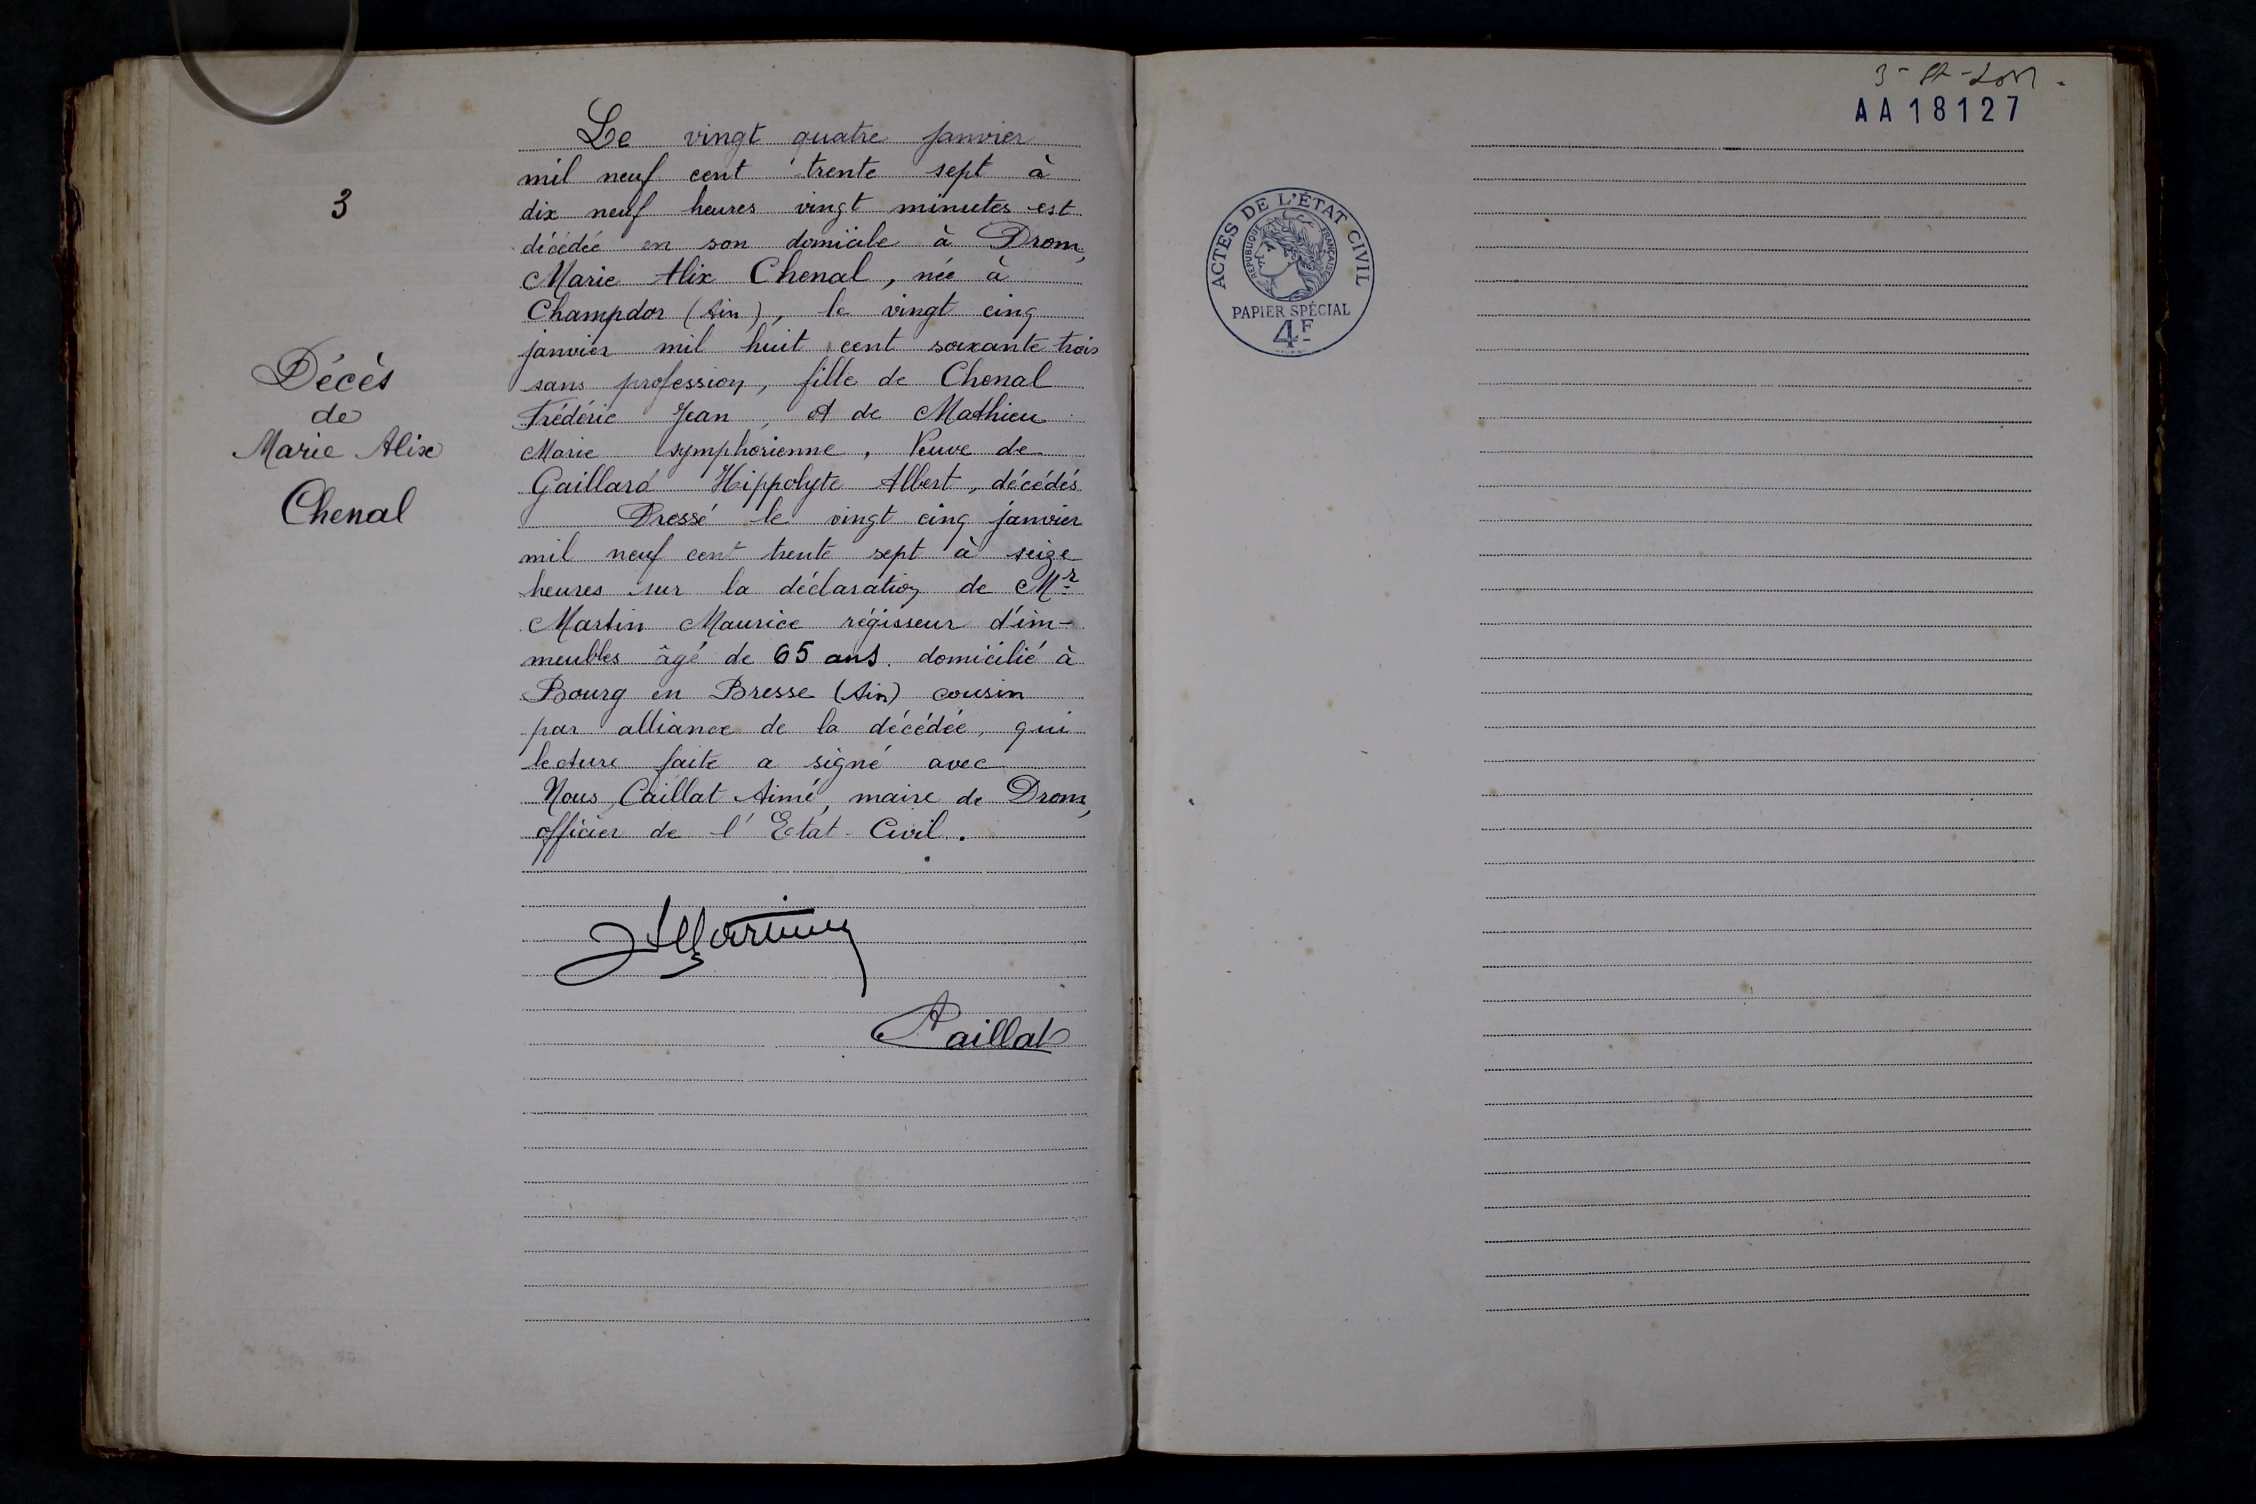 3
Décès
de
Marie Alix
Chenal
Le vingt quatre janvier
mil neuf cent trente sept à
dix neuf heures vingt minutes est
décédée en son domicile à Drom,
Marie Alix Chenal, née à
Champdor (Ain), le vingt cinq
janvier mil huit cent soixante trois
sans profession, fille de Chenal
Frédéric Jean, et de Mathieu
Marie Symphorienne, Veuve de
Gaillard Hippolyte Albert, décédés
Dressé le vingt cinq janvier
mil neuf cent trente sept à seize
heures sur la déclaration de Mr
Martin Maurice régisseur d'im-
meubles âgé de 65 ans domicilié à
Bourg en Bresse (Ain) cousin
par alliance de la décédée, qui
lecture faite a signé avec
Nous, Caillat Aimé, maire de Drom,
officier de l'Etat-Civil.
Martin
Caillat
AA18127
ACTES DE L'ÉTAT CIVIL
RÉPUBLIQUE FRANÇAISE
PAPIER SPÉCIAL
4F